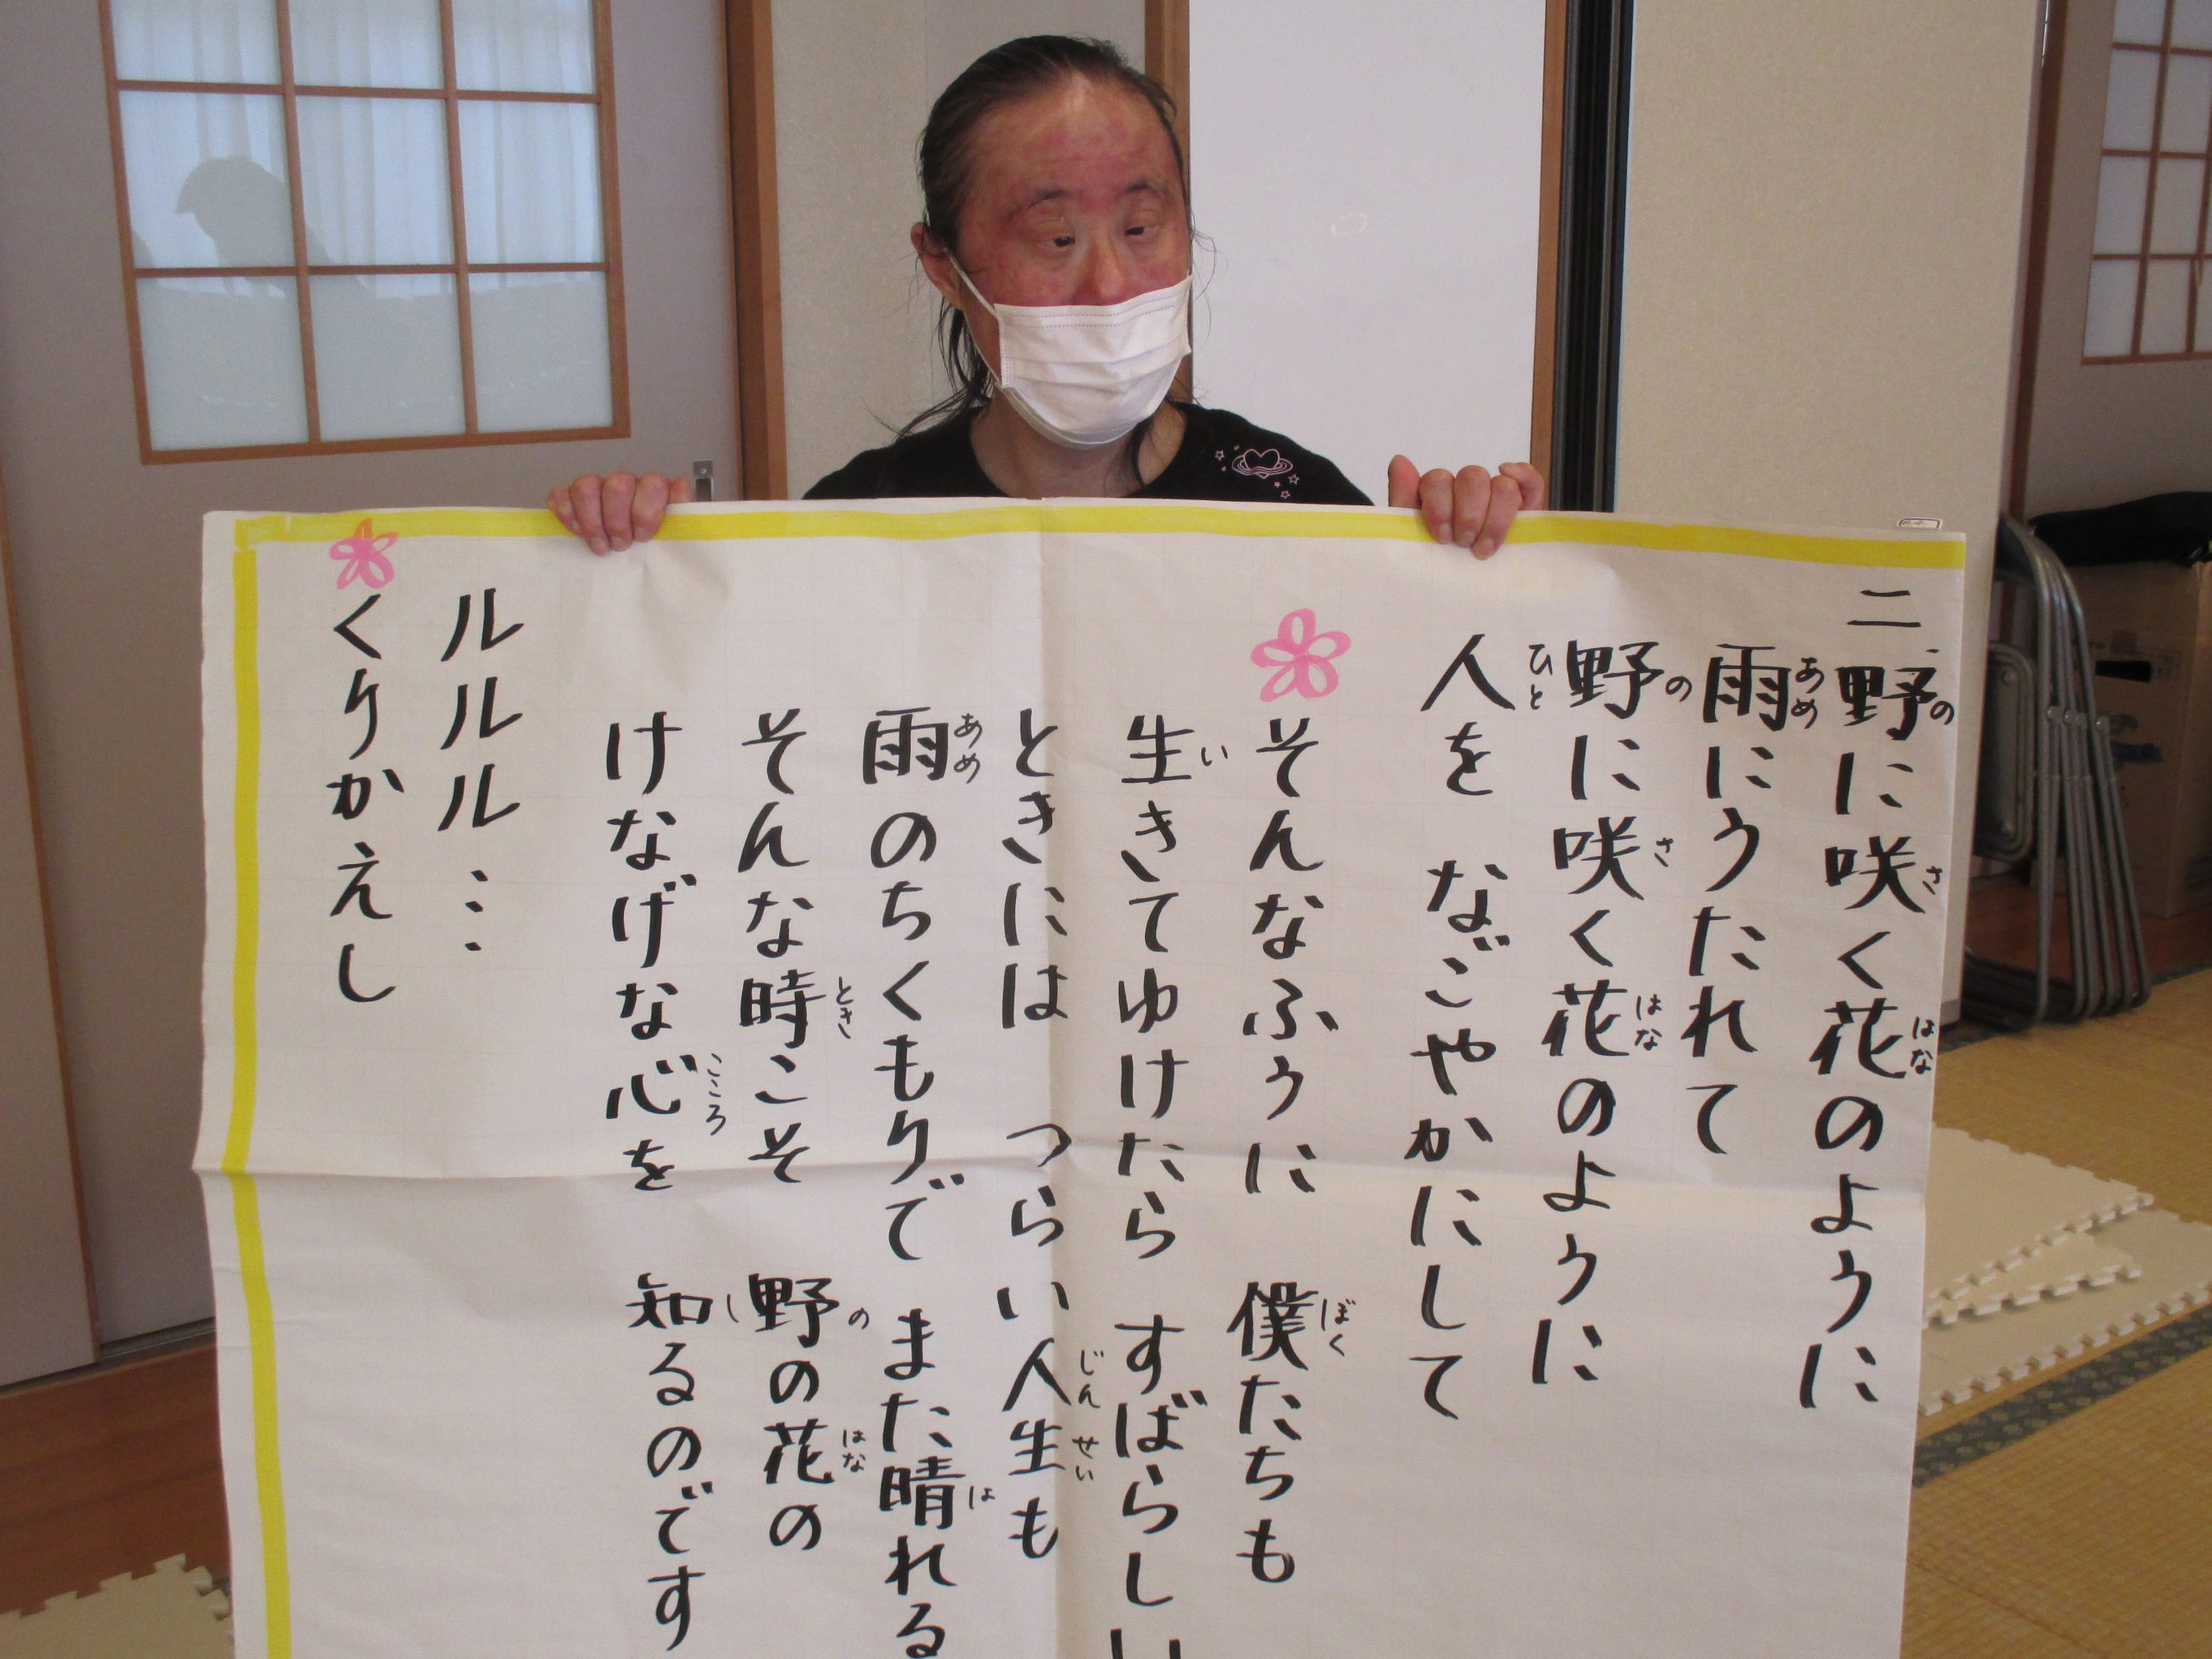 二 野に咲く花のように
雨にうたれて
野に咲く花のように
人を なごやかにして
そんなふうに 僕たちも
生きてゆけたら すばらしい
ときには つらい人生も
雨のちくもりで また晴れる
そんな時こそ 野の花の
けなげな心を 知るのです
ルルル…
くりかえし